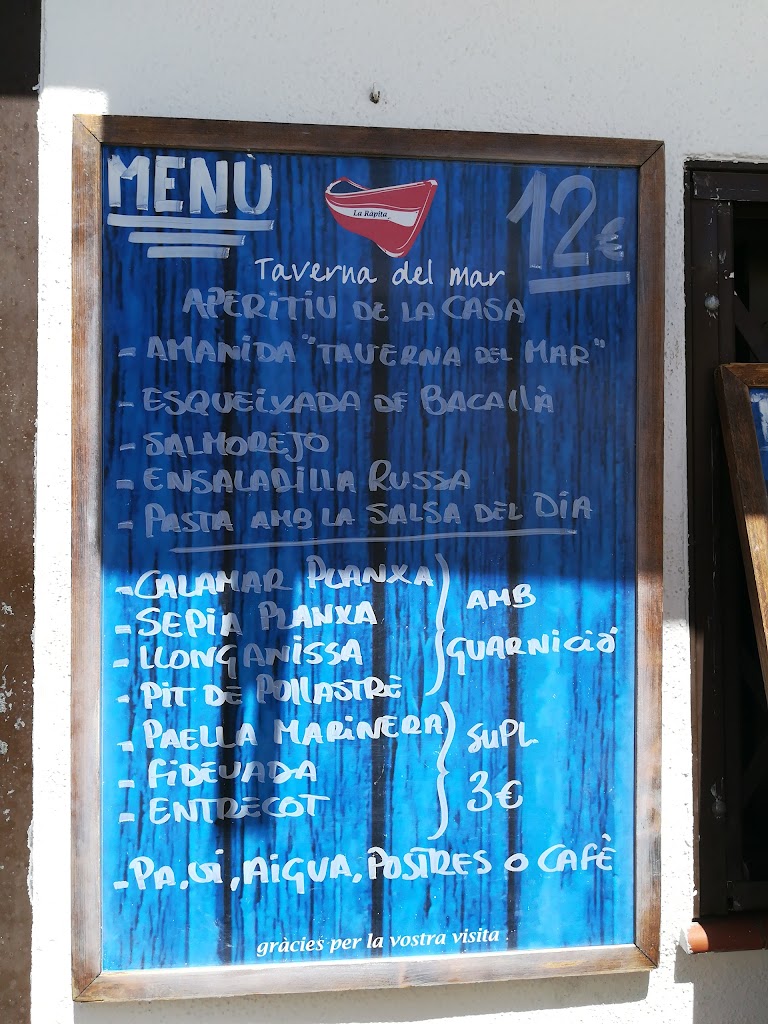 MENÚ
La Ràpita
12€
Taverna del mar
APERITIU DE LA CASA
- AMANIDA "TAVERNA DEL MAR"
- ESQUEIXADA DE BACALLÀ
- SALMOREJO
- ENSALADILLA RUSSA
- PASTA AMB LA SALSA DEL DIA
- CALAMAR PLANXA
- SEPIA PLANXA
- LLONGANISSA
- PIT DE POLLASTRE
AMB
GUARNICIÓ
- PAELLA MARINERA
- FIDEUADA
- ENTRECOT
SUPL.
3€
- PA, VI, AIGUA, POSTRES O CAFÈ
gràcies per la vostra visita